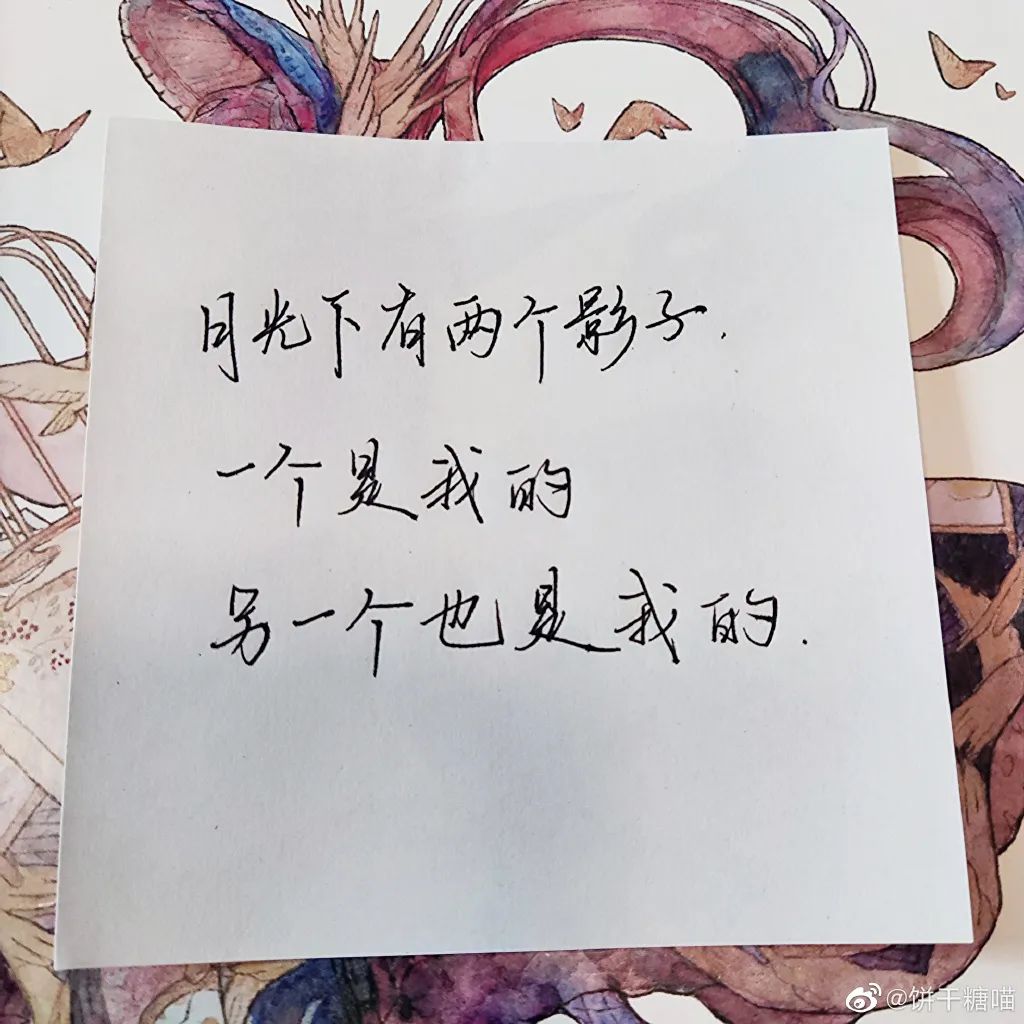 月光下有两个影子.
一个是我的
另一个也是我的.
@饼干糖喵